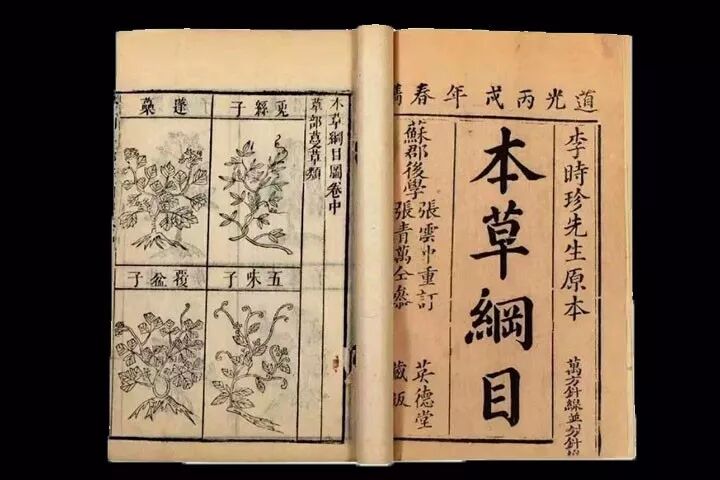 道光丙戌年春鐫
李時珍先生原本
萬方針線並
本草綱目
蘇郡後學
張雲中重訂
張青萬仝參
英德堂
藏板
本草綱目圖卷中
草部蔓草類
兎絲子
蓬蘽
五味子
覆盆子